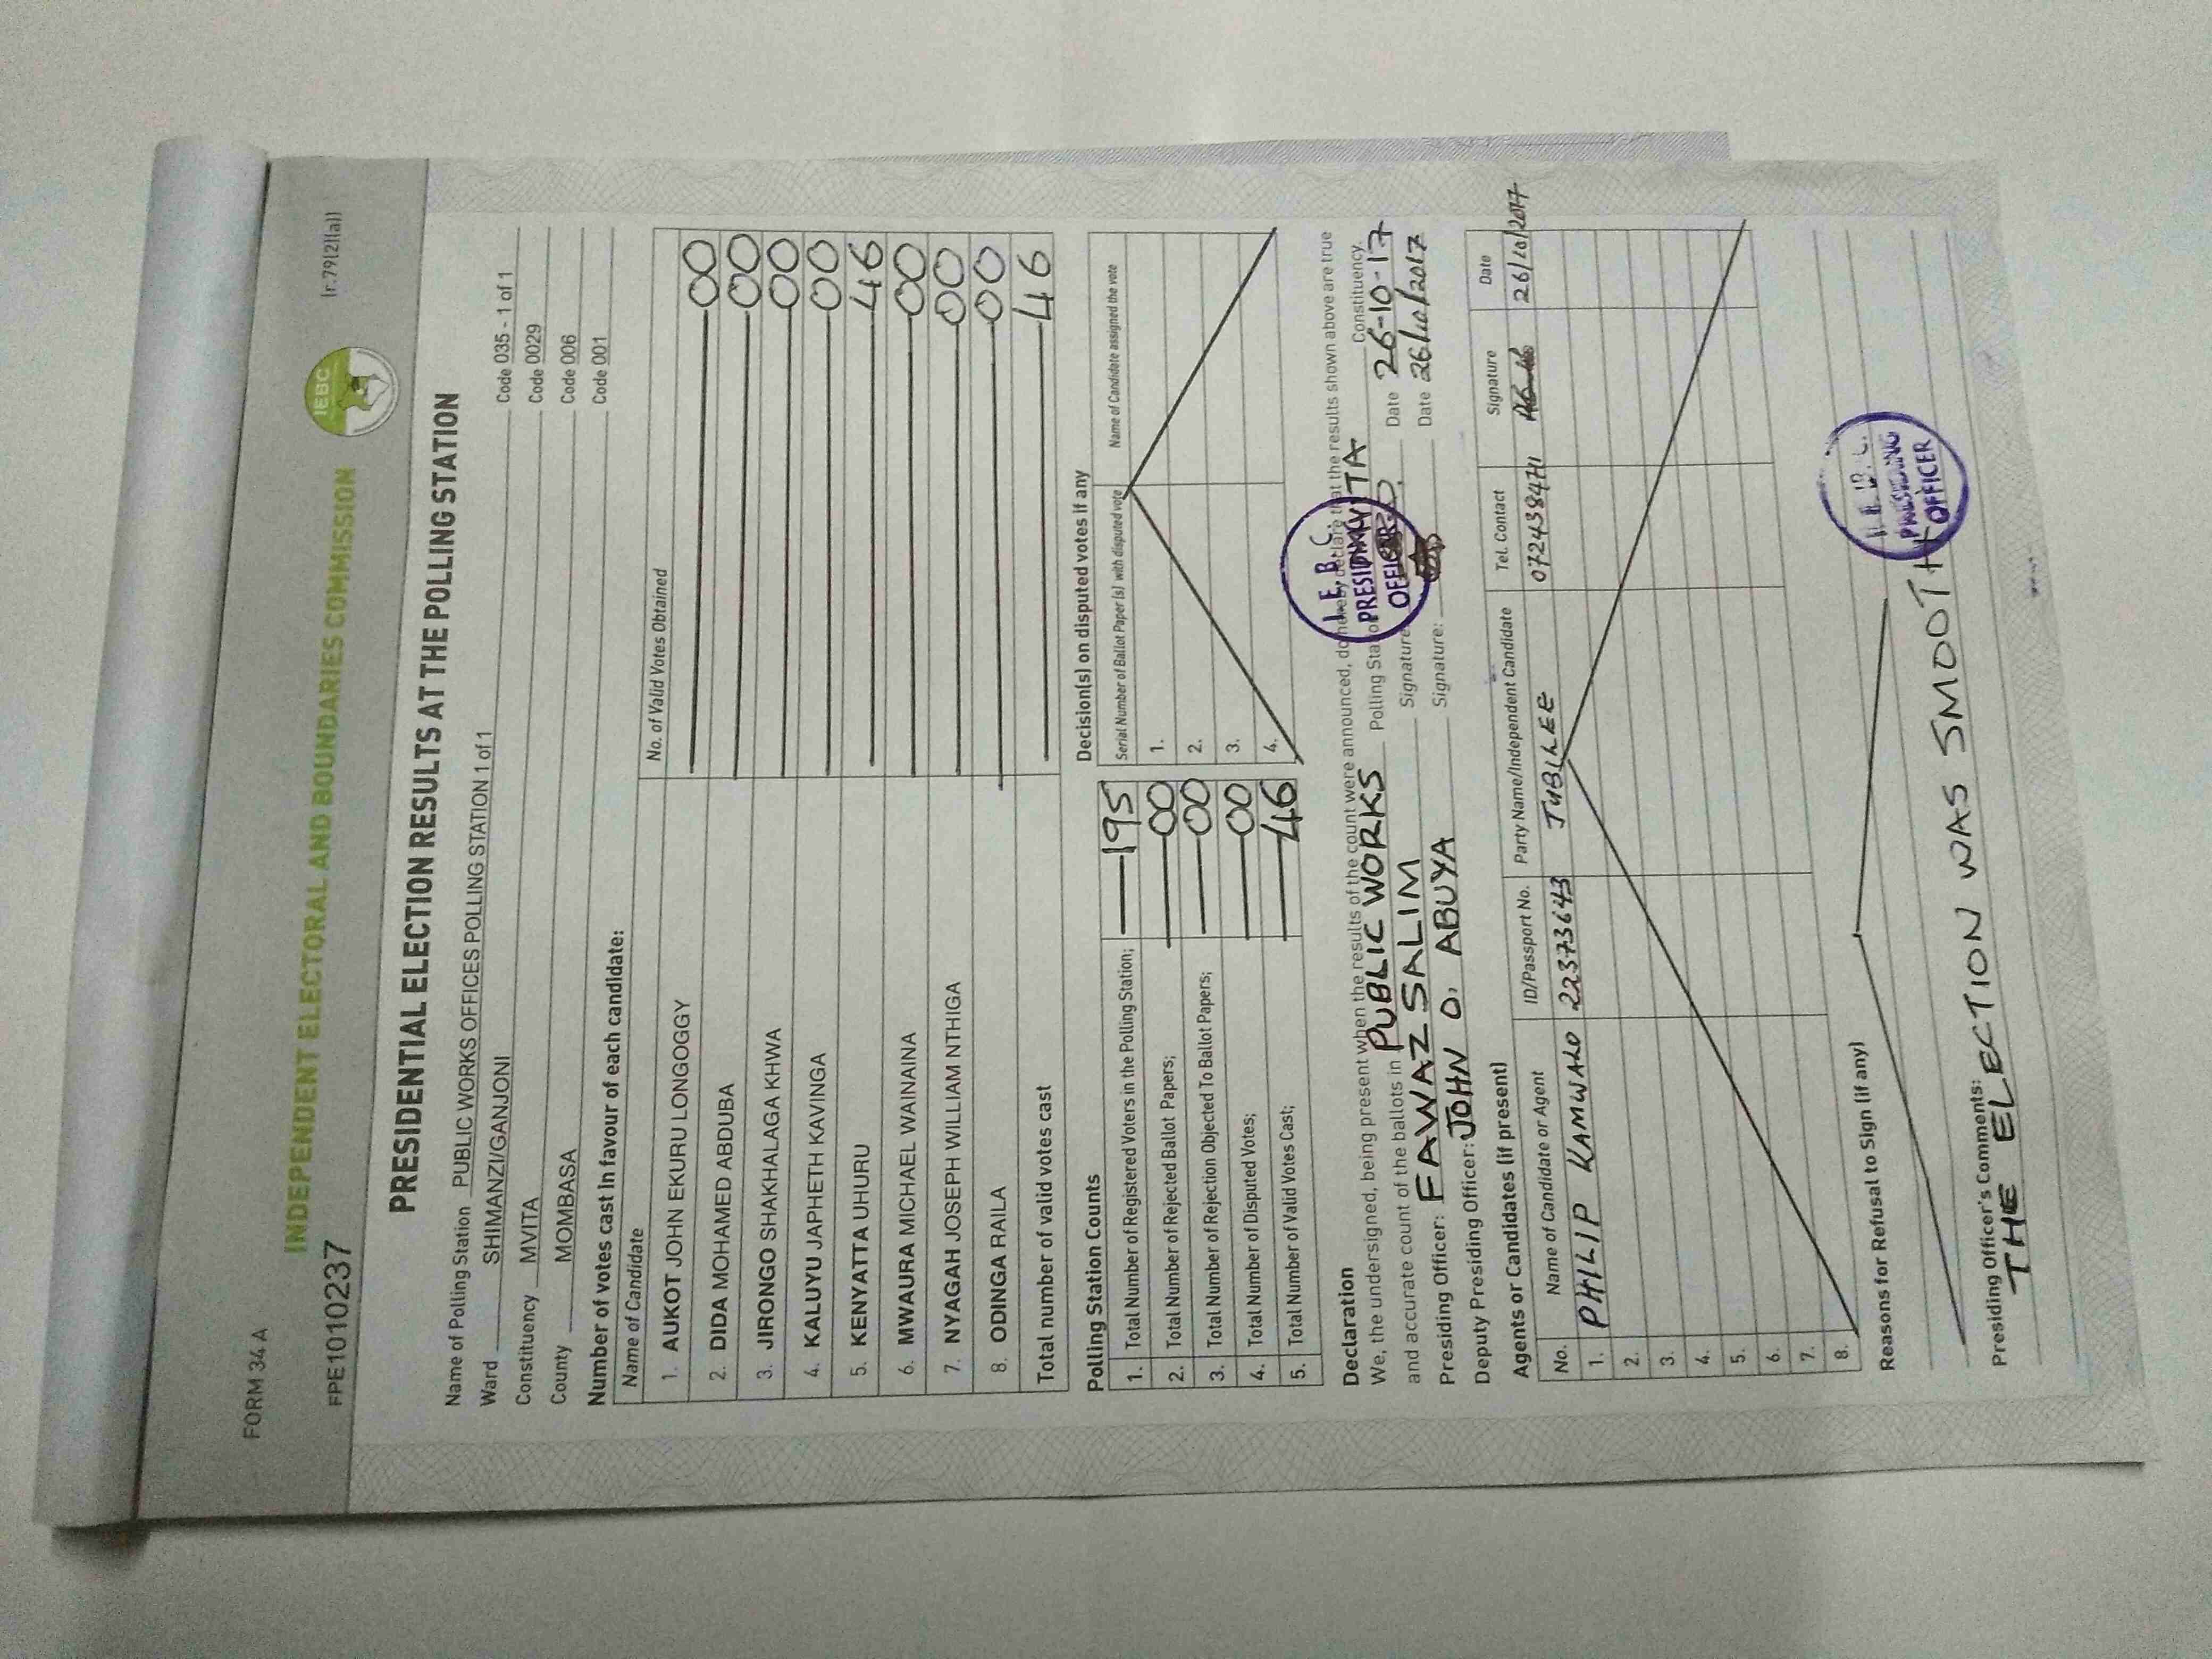 FORM 34 A
(r.79(2)(a))
INDEPENDENT ELECTORAL AND BOUNDARIES COMMISSION
IEBC
FPE1010237
PRESIDENTIAL ELECTION RESULTS AT THE POLLING STATION
Name of Polling Station PUBLIC WORKS OFFICES POLLING STATION 1 of 1 Code 035 - 1 of 1
Ward SHIMANZI/GANJONI Code 0029
Constituency MVITA Code 006
County MOMBASA Code 001
Number of votes cast in favour of each candidate:
Name of Candidate No. of Valid Votes Obtained
1. AUKOT JOHN EKURU LONGOGGY 00
2. DIDA MOHAMED ABDUBA 00
3. JIRONGO SHAKHALAGA KHWA 00
4. KALUYU JAPHETH KAVINGA 00
5. KENYATTA UHURU 46
6. MWAURA MICHAEL WAINAINA 00
7. NYAGAH JOSEPH WILLIAM NTHIGA 00
8. ODINGA RAILA 00
Total number of valid votes cast 46
Polling Station Counts
1. Total Number of Registered Voters in the Polling Station; 195
2. Total Number of Rejected Ballot Papers; 00
3. Total Number of Rejection Objected To Ballot Papers; 00
4. Total Number of Disputed Votes; 00
5. Total Number of Valid Votes Cast; 46
Decision(s) on disputed votes if any
Serial Number of Ballot Paper (s) with disputed vote Name of Candidate assigned the vote
1.
2.
3.
4.
Declaration
We, the undersigned, being present when the results of the count were announced, do hereby declare that the results shown above are true
and accurate count of the ballots in PUBLIC WORKS Polling Station MVITA Constituency.
Presiding Officer: FAWAZ SALIM Signature Date 26-10-17
Deputy Presiding Officer: JOHN O. ABUYA Signature: Date 26/10/2017
I.E.B.C.
PRESIDING
OFFICER
Agents or Candidates (if present)
No. Name of Candidate or Agent ID/Passport No. Party Name/Independent Candidate Tel. Contact Signature Date
1. PHILIP KAMWARO 22373643 JUBILEE 0724384711 26/10/2017
2.
3.
4.
5.
6.
7.
8.
Reasons for Refusal to Sign (if any)
I.E.B.C.
PRESIDING
OFFICER
Presiding Officer's Comments:
THE ELECTION WAS SMOOTH